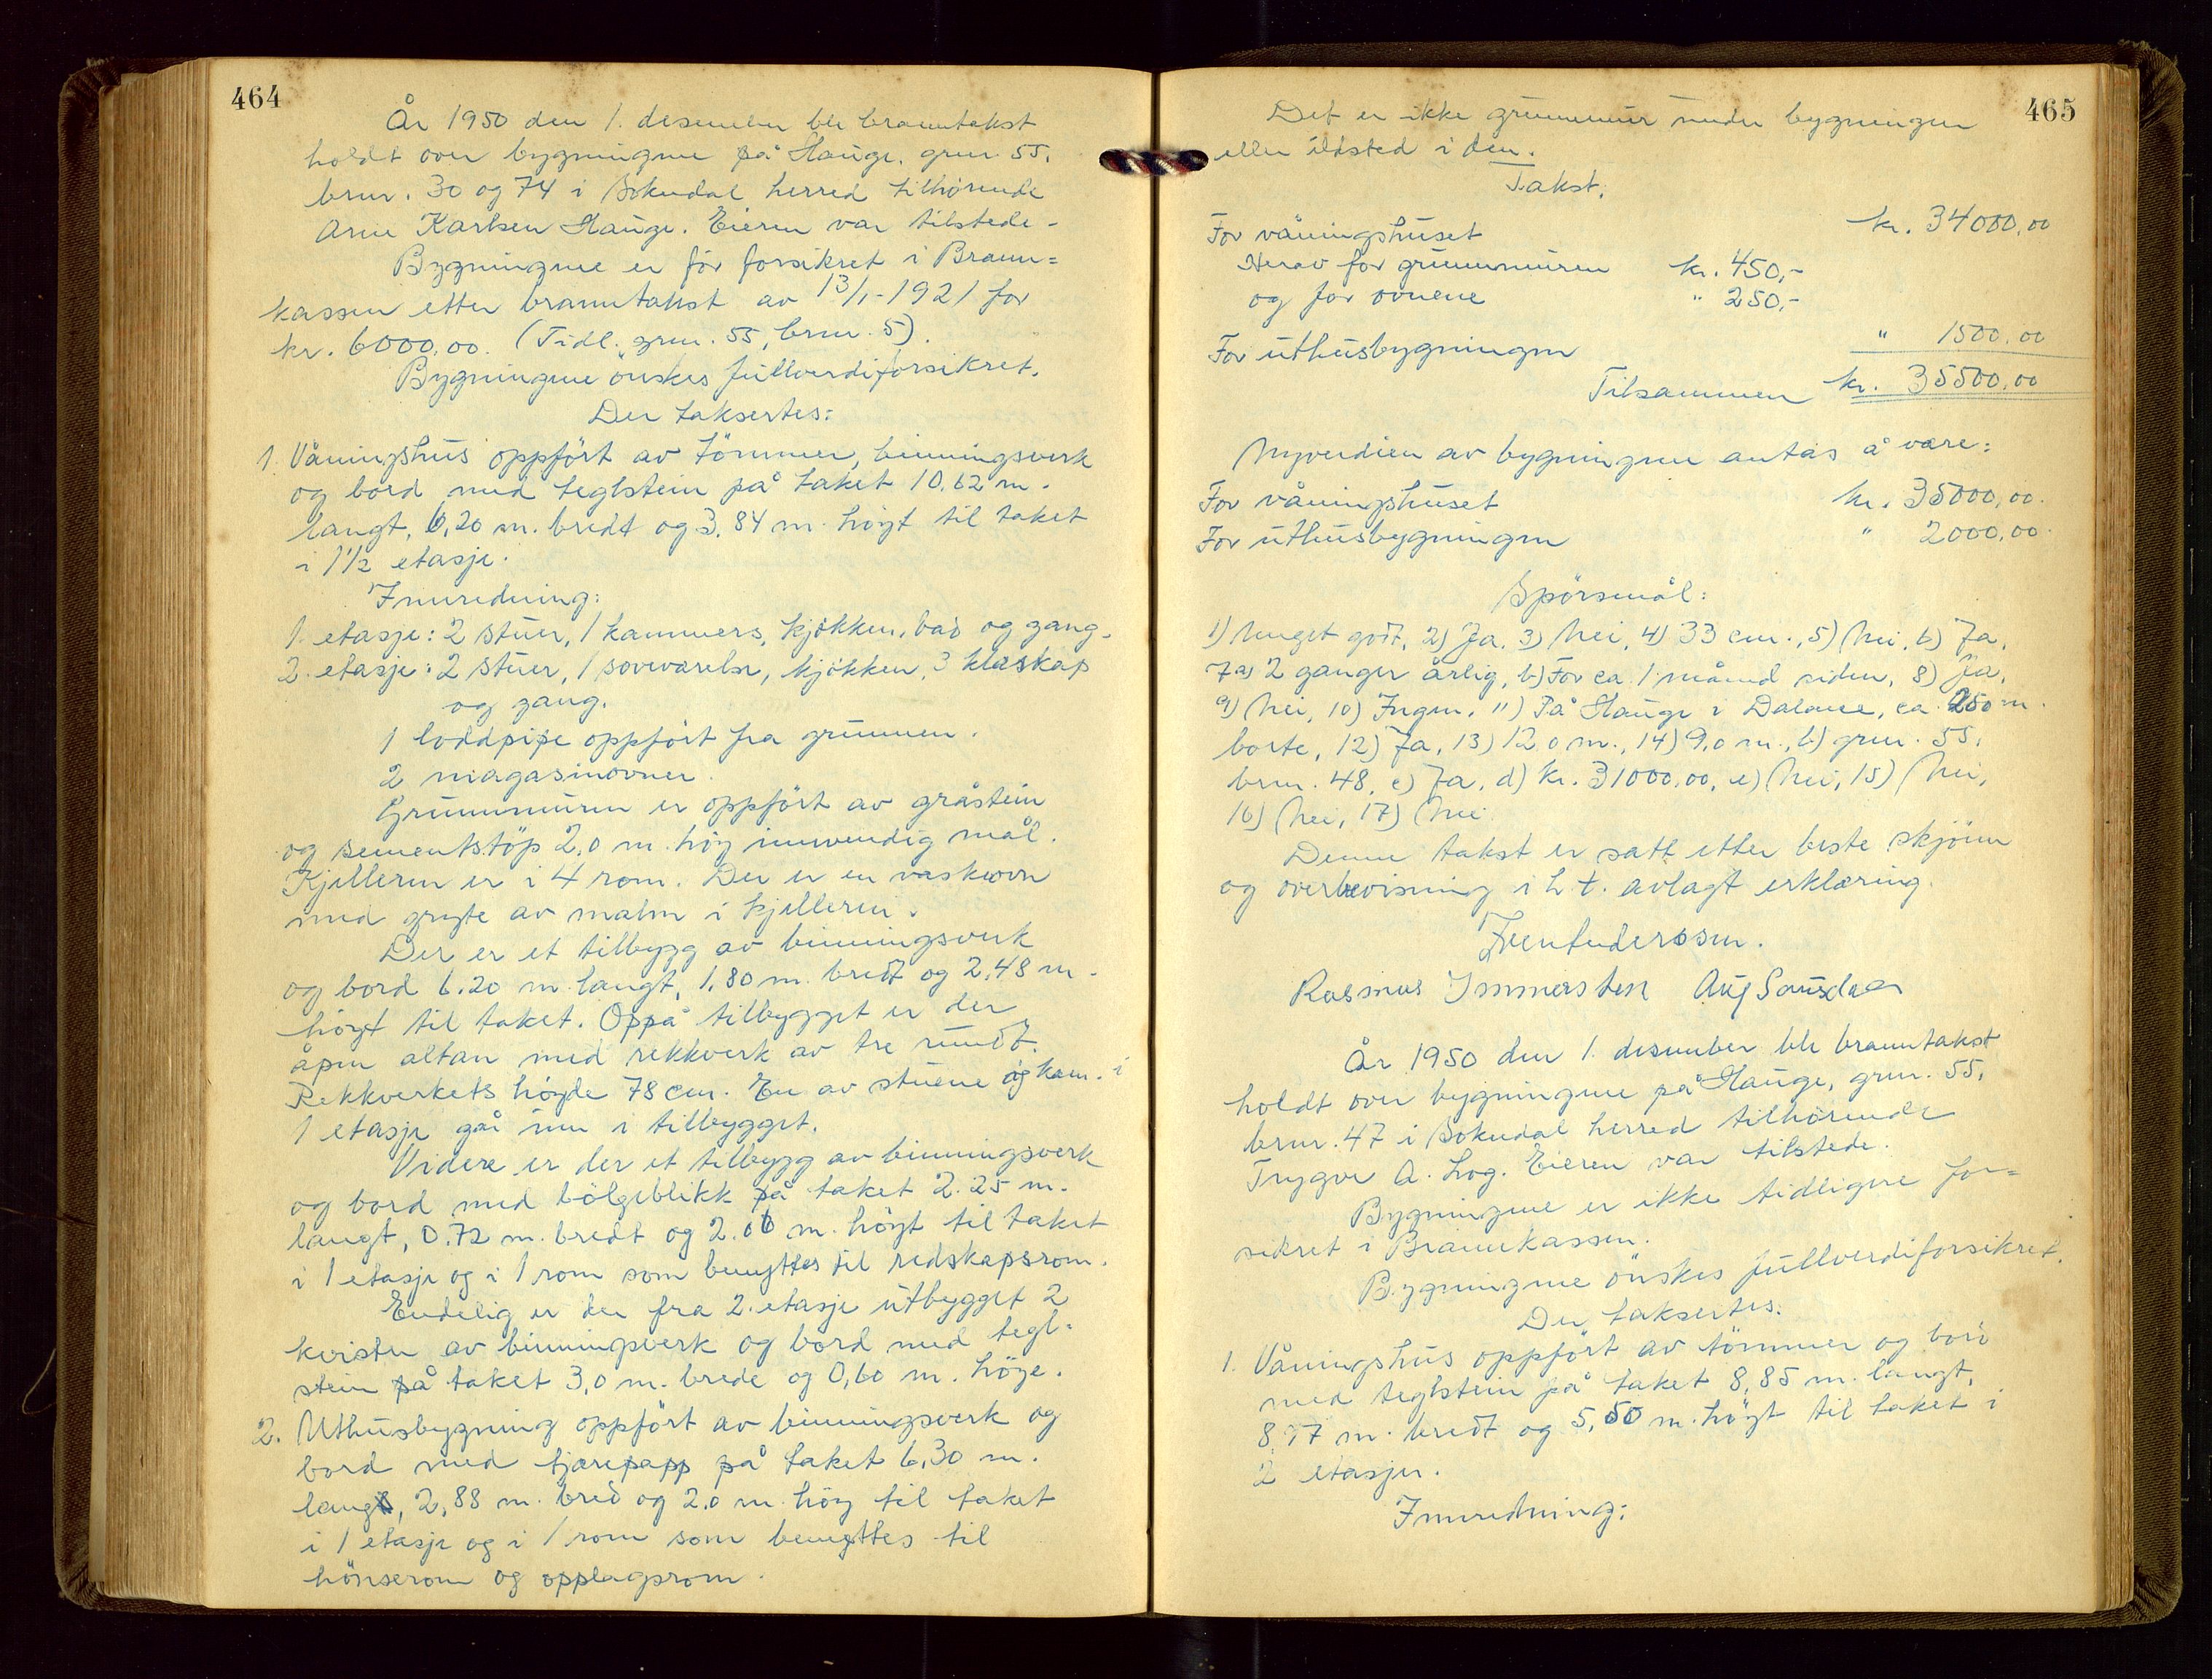 464
År 1950 den 1. desember ble branntakst
holdt over bygningene på Hauge, grnr. 55,
brnr. 30 og 74 i Sokndal herred tilhörende
Arne Karlsen Hauge. Eieren var tilstede.
Bygningene er för forsikret i Brann=
kassen etter branntakst av 13/1-1921 for
kr. 6000,00. (Tidl. grnr. 55, brnr. 5).
Bygningene önskes fullverdiforsikret.
Der taksertes:
1. Våningshus oppfört av tömmer, binningsverk
og bord med teglstein på taket 10.62 m.
langt, 6,20 m. bredt og 3,84 m. höyt til taket
i 1½ etasje.
Innredning:
1. etasje: 2 stuer, 1 kammers, kjökken, bad og gang.
2. etasje: 2 stuer, 1 soveværelse, kjökken, 3 kleskap
og gang.
1 loddpipe oppfört fra grunnen.
2 magasinovner.
Grunnmuren er oppfört av gråstein
og sementstöp 2,0 m. höy innvendig mål.
Kjelleren er i 4 rom. Der er en vaskeovn
med gryte av malm i kjelleren.
Der er et tilbygg av binningsverk
og bord 6.20 m. langt, 1,80 m. bredt og 2,48 m.
höyt til taket. Oppå tilbygget er der
åpen altan med rekkverk av tre rundt.
Rekkverkets höyde 78 cm. En av stuene og kam. i
1 etasje går inn i tilbygget.
Videre er der et tilbygg av binningsverk
og bord med bölgeblikk på taket 2.25 m.
langt, 0.72 m. bredt og 2.06 m. höyt til taket
i 1 etasje og i 1 rom som benyttes til redskapsrom.
Endelig er der fra 2. etasje utbygget 2
kvister av binningsverk og bord med tegl-
stein på taket 3,0 m. brede og 0,60 m. höye.
2. Uthusbygning oppfört av binningsverk og
bord med tjærepapp på taket 6,30 m.
lang, 2,88 m. bred og 2,0 m. höy til taket
i 1 etasje og i 1 rom som benyttes til
hönserom og opplagsrom.
465
Det er ikke grunnmur under bygningen
eller ildsted i den.
Takst:
For våningshuset kr. 34000,00
Herav for grunnmuren kr. 450,-
og for ovnene " 250,-
For uthusbygningen " 1500,00
Tilsammen kr. 35500,00
Nyverdien av bygningene antas å være:
For våningshuset kr. 35000,00.
For uthusbygningen " 2000,00.
Spörsmål:
1) Meget godt, 2) Ja, 3) Nei, 4) 33 cm., 5) Nei, 6) Ja,
7a) 2 ganger årlig, b) For ca. 1 måned siden, 8) Ja,
9) Nei, 10) Ingen, 11) På Hauge i Dalane, ca. 250 m.
borte, 12) Ja, 13) 120 m., 14) 9,0 m., b) grnr. 55,
brnr. 48, c) Ja, d) kr. 31000,00, e) Nei, 15) Nei,
16) Nei, 17) Nei.
Denne takst er satt etter beste skjönn
og overbevisning i h. t. avlagt erklæring.
Rasmus Immersten Aug Sausdal
År 1950 den 1. desember ble branntakst
holdt over bygningene på Hauge, grnr. 55,
brnr. 47 i Sokndal herred tilhörende
Trygve A. Log. Eieren var tilstede.
Bygningene er ikke tidligere for=
sikret i Brannkassen.
Bygningene önskes fullverdiforsikret.
Der taksertes:
1. Våningshus oppfört av tömmer og bord
med teglstein på taket 8,85 m. langt,
8,77 m. bredt og 5,50 m. höyt til taket i
2 etasjer.
Innredning: